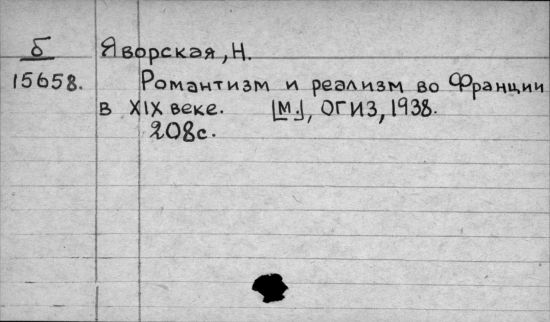 б Яворская, Н.
15658. Романтизм и реализм во Франции
в XIX веке. [М.], ОГИЗ, 1938.
208с.